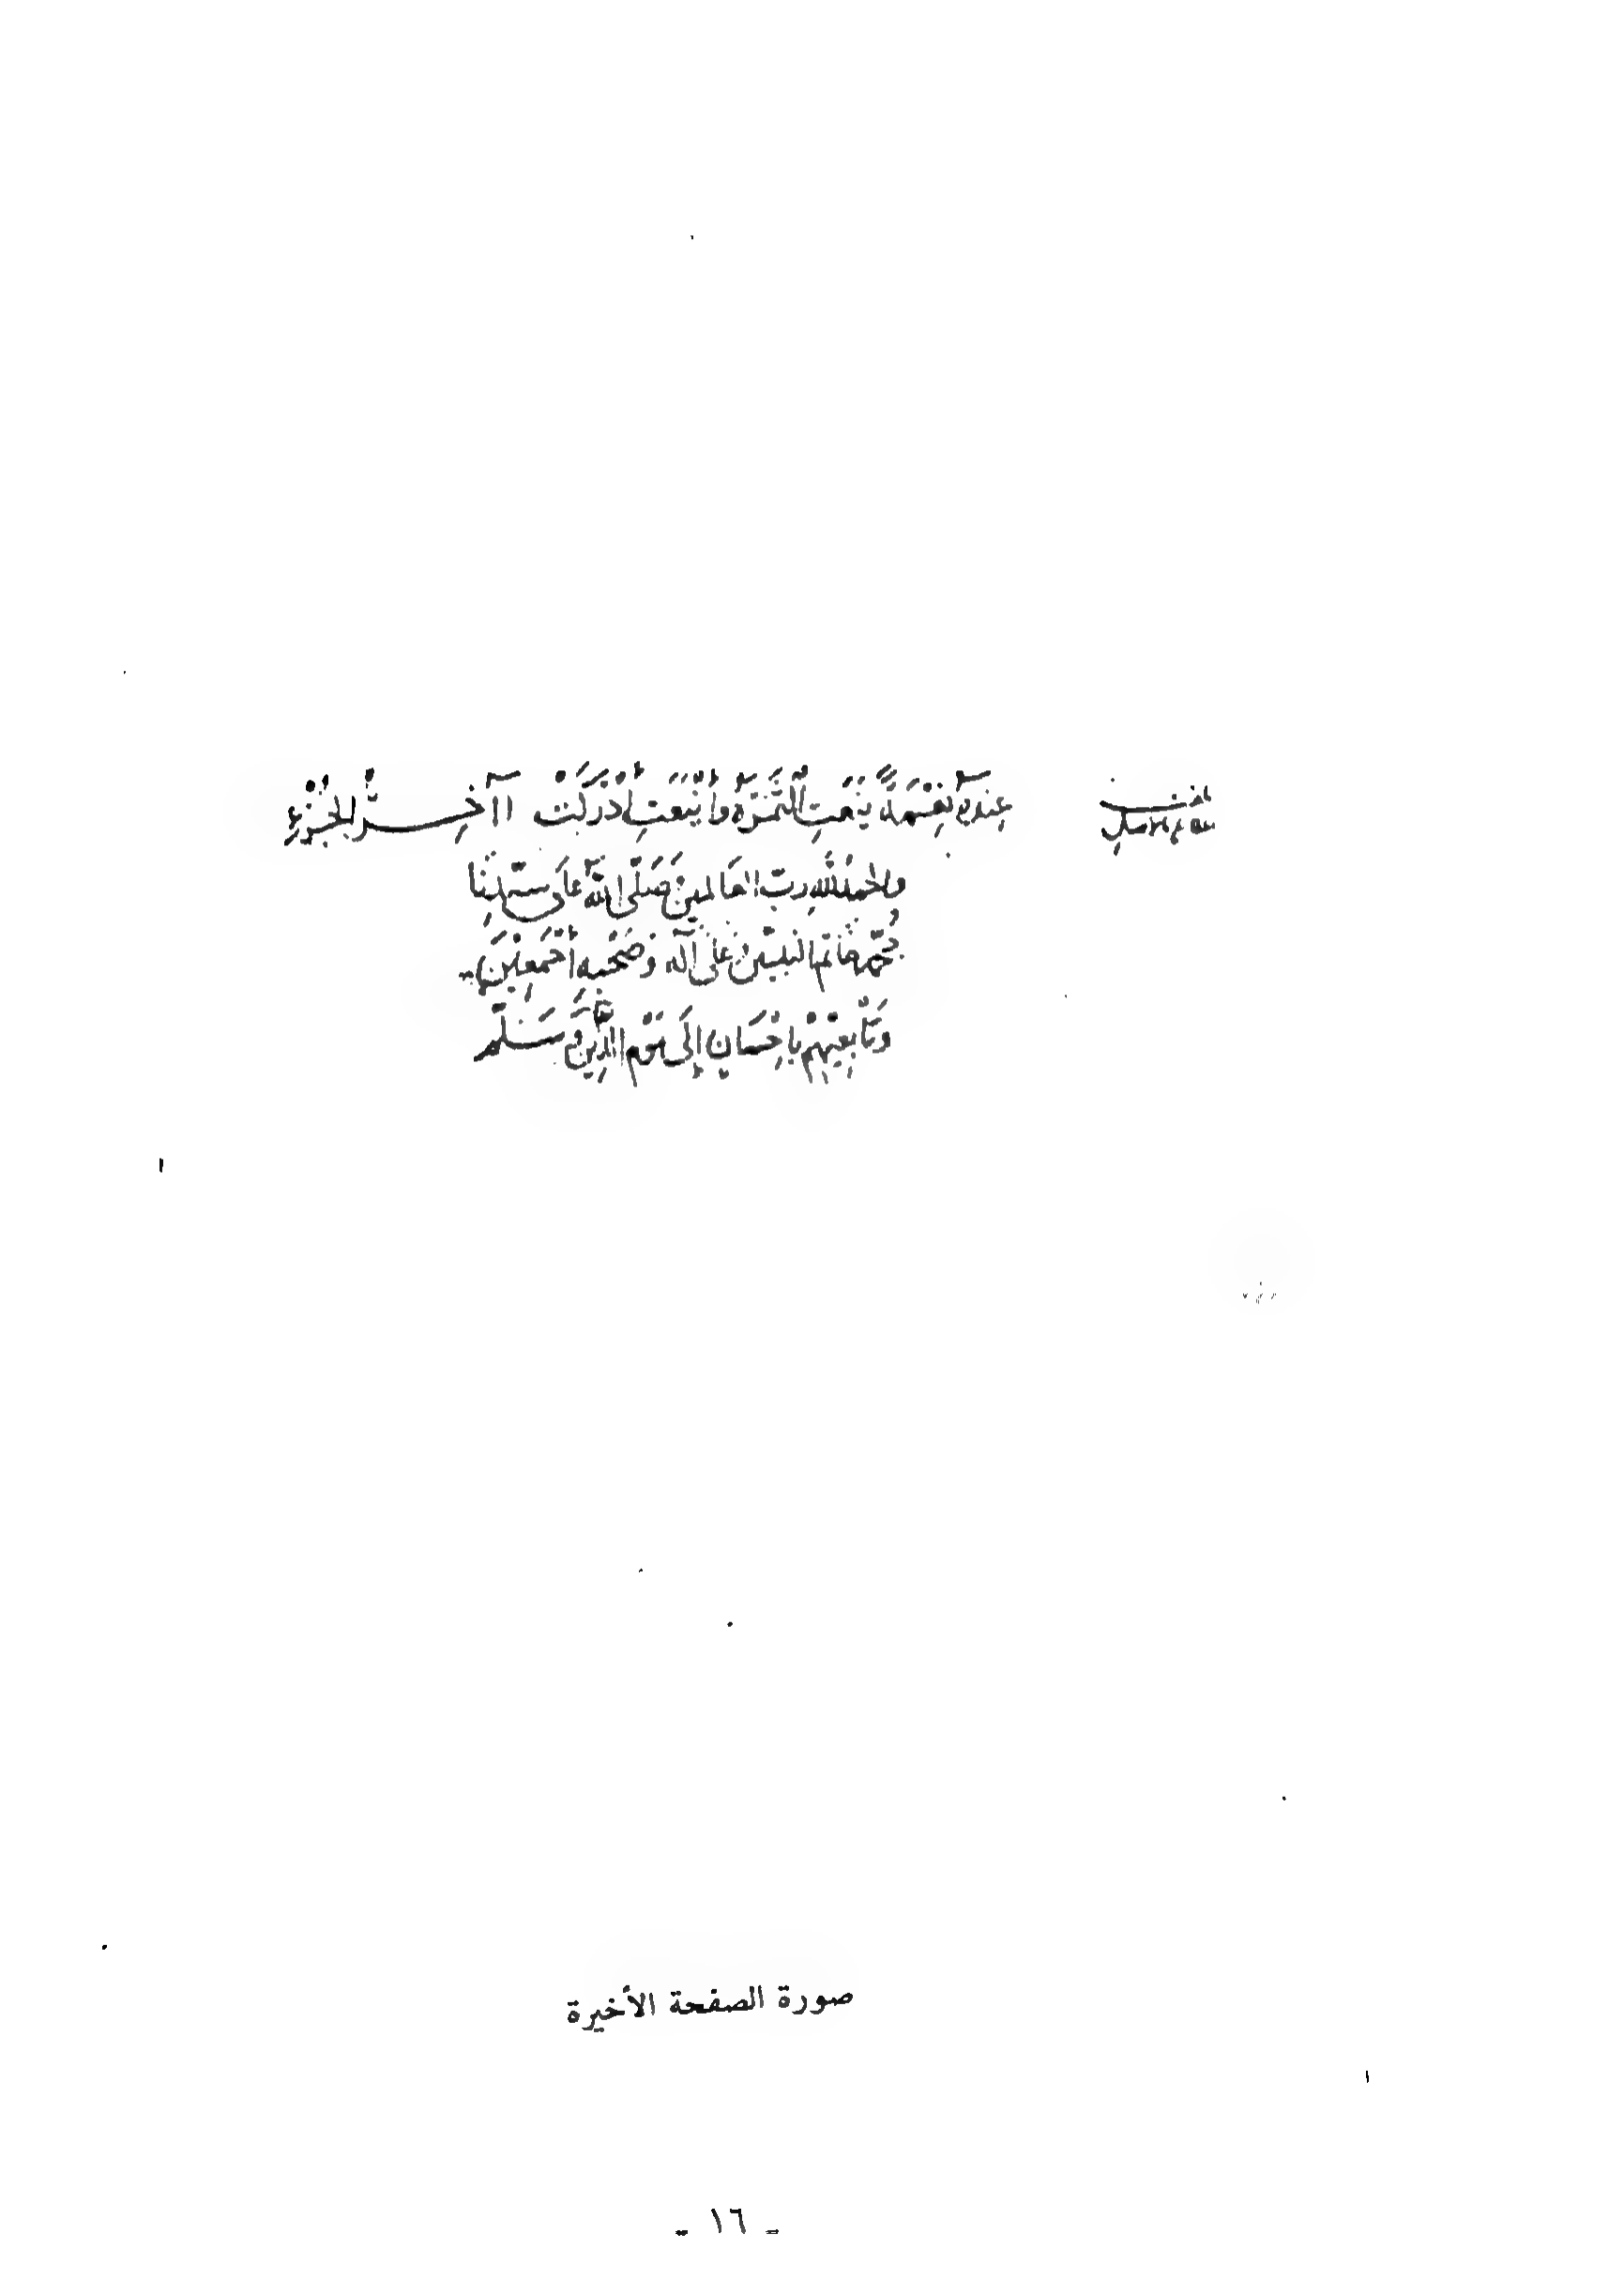 يَنَعَتِ الثَّمَرَةُ وأَيْنَعَتِ أَدْرَكَتْ اا آخِرُ الجُزْءِ
والحمدُ للهِ ربّ العَالمينَ صَلَّى اللهُ عَلَى سَيّدِنَا
مُحمّد خَاتم النبيّين وَعَلَى آله وَصَحْبِهِ أَجْمَعِيْنَ
وَتَابِعِيْهِمْ بِإِحْسَانٍ إِلَى يَوْمِ الدِّينِ وَسَلَّمَ
صورة الصفحة الأخيرة
- ١٦ -